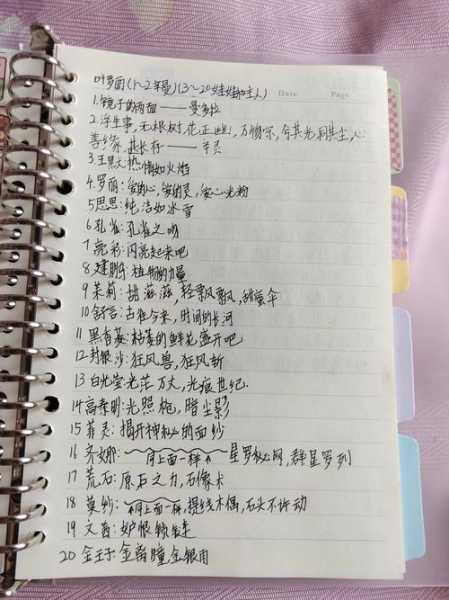 叶罗丽(1~2年是)(3~20娃娃和主人)
Date Page
1.镜子的两面——曼多拉
2.浮生事,无根树,花正幽,万愦宗,合其光同其尘,心
善缘,其长存——辛灵
3.王默:热情如火焰
4.罗丽:爱的心,爱的灵,爱心光粉
5思思:纯洁如冰雪
6.孔雀:孔雀之吻
7.亮彩:闪亮起来吧
8.建鹏:植物的力量
9茉莉:滋滋,轻飘飘,胡蝶伞
10.舒言:古往今来,时间的长河
11黑香菱:枯萎的鲜花盛开吧
12封银沙:狂风兽,狂风斩
13白光莹光芒万丈,光痕世纪.
14高泰明:光照枪,暗尘影
15菲灵:揭开神秘的面纱
16齐娜:同上面一样,星罗秘网,群星罗列
17荒石:原石之力,石像术
18莫纱:同上面一样,提线木偶,石头不许动
19文茜:妒恨锁链
20金王子:金离瞳,金银甲